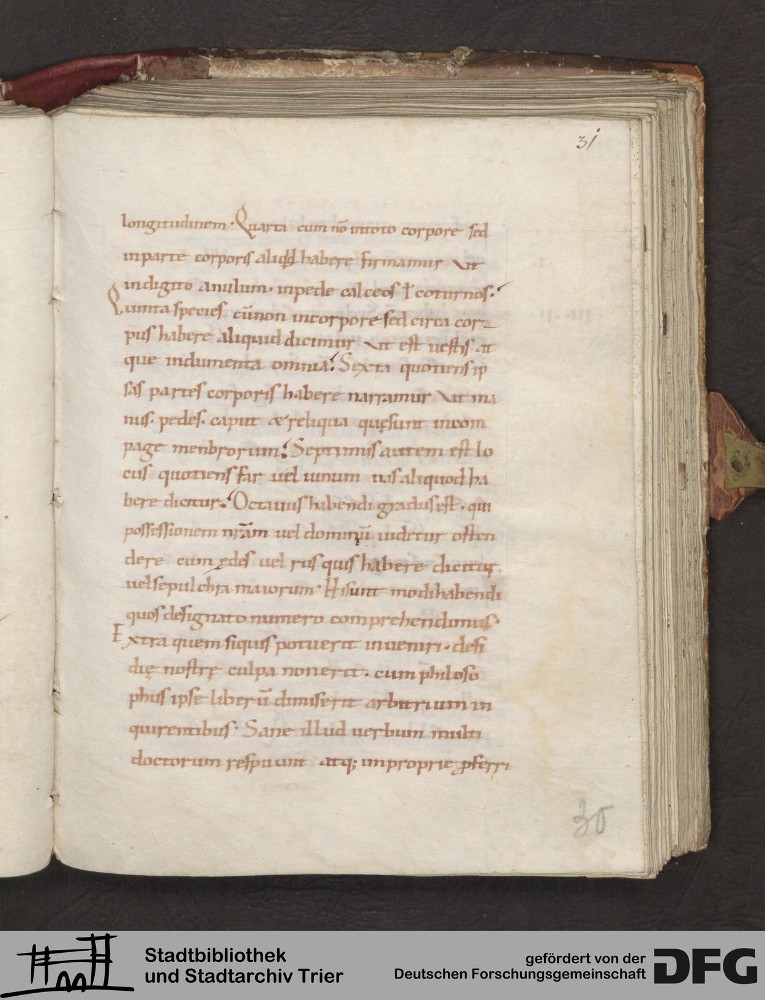 31
longitudinem · Quarta cum nō intoto corpore sed
inparte corporis aliqđ habere firmamur Ut
indigito anulum · inpede calceos ł coturnos ·
Quinta species. cū non incorpore sed circa cor-
pus habere aliquid dicimur Ut est uestis at
que indumenta omnia. Sexta quotiens ip
sas partes corporis habere narramur Ut ma
nus. pedes. caput & reliqua quęsunt incom
page menbrorum. Septimus autem est lo
cus quotiens far uel uinum uas aliquod ha
bere dicitur. Octauus habendi gradus est · qui
possessionem nr̄am uel dominiū uidetur osten
dere cum ędes uel rus quis habere dicitur.
uel sepulchra maiorum · Hi sunt modi habendi
quos designato numero comprehendimus ·
Extra quem siquis potuerit inueniri · desi
dię nostrę culpa non erit. cum philoso
phus ipse liberū dimiserit arbitrium in
quirentibus · Sane illud uerbum multi
doctorum respuunt atq; improprie ꝓferri
30
Stadtbibliothek
und Stadtarchiv Trier
gefördert von der
Deutschen Forschungsgemeinschaft
DFG